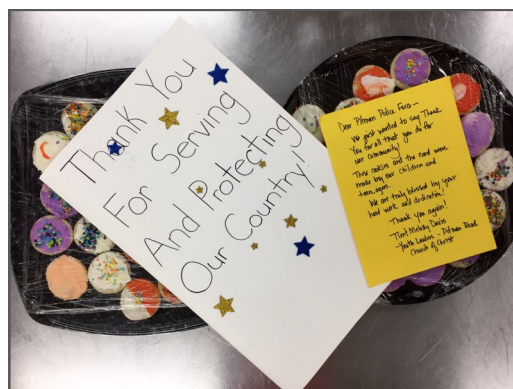 Thank You
For Serving
And Protecting
Our Country!
Dear Pitman Police Force -
We just wanted to say Thank
You for all that you do for
our community!
These cookies and the card were
made by our children and
teen-agers.
We are truly blessed by your
hard work and dedication!
Thank you again!
Davis
-Youth Leaders - Pitman Road
Church of Christ